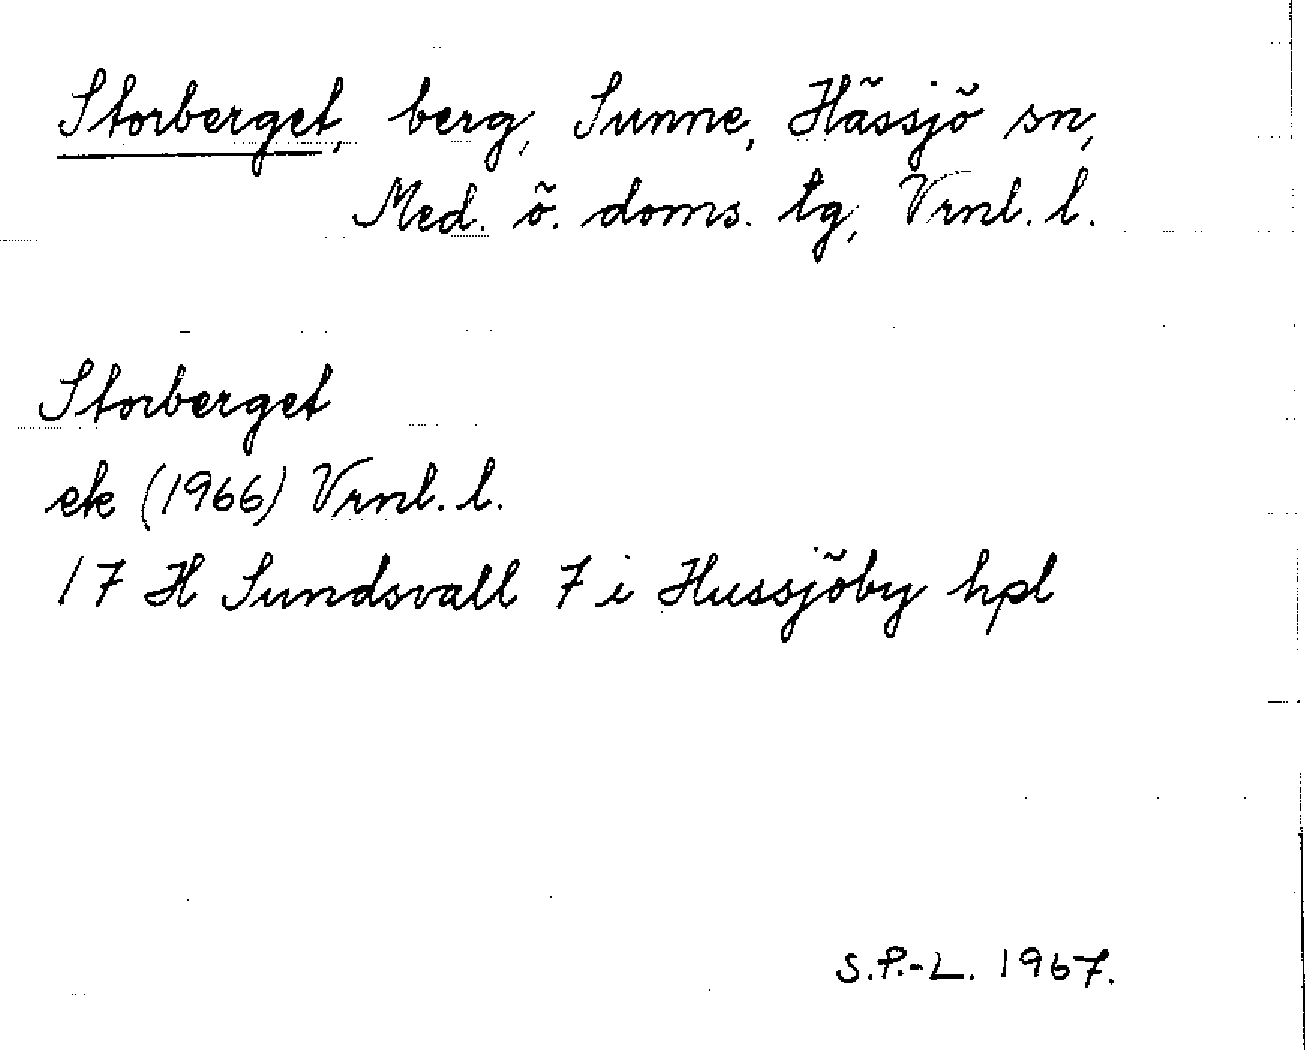 Storberget, berg, Sunne, Hässjö sn,
Med. ö. doms. tg, Vrnl. l.
Storberget
ek (1966) Vrnl. l.
17 H Sundsvall 7 i Hussjöby hpl
S.P.-L. 1967.